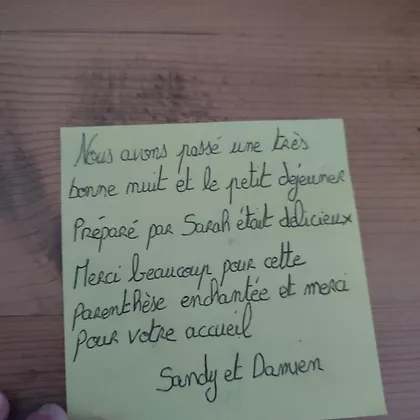 Nous avons passé une très
bonne nuit et le petit déjeuner
Préparé par Sarah était délicieux
Merci beaucoup pour cette
Parenthèse enchantée et merci
pour votre accueil
Sandy et Damien